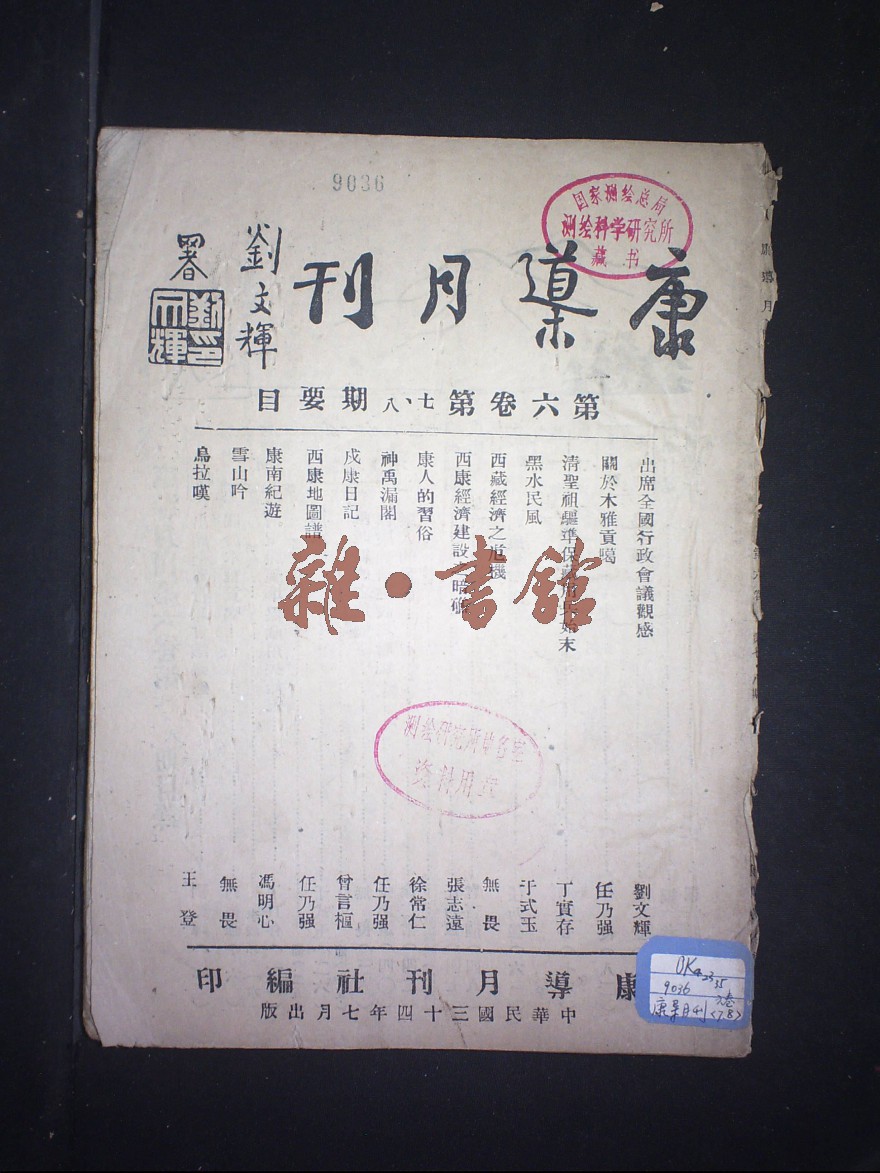 9036
国家测绘总局
测绘科学研究所
藏书
康導月刊
劉文輝
署
第六卷第七、八期要目
出席全國行政會議觀感 劉文輝
關於木雅貢噶 任乃强
清聖祖驅準保藏用兵始末 丁實存
黑水民風 于式玉
西藏經濟之危機 無畏
西康經濟建設之暗礁 張志遠
康人的習俗 徐常仁
神禹漏閣 任乃强
戍康日記 曾言樞
西康地圖譜 任乃强
康南紀遊 馮明心
雪山吟 無畏
烏拉嘆 王登
雜·書館
资料用章
康導月刊社編印
中華民國三十四年七月出版
9036
康导月刊
六卷
<7.8>